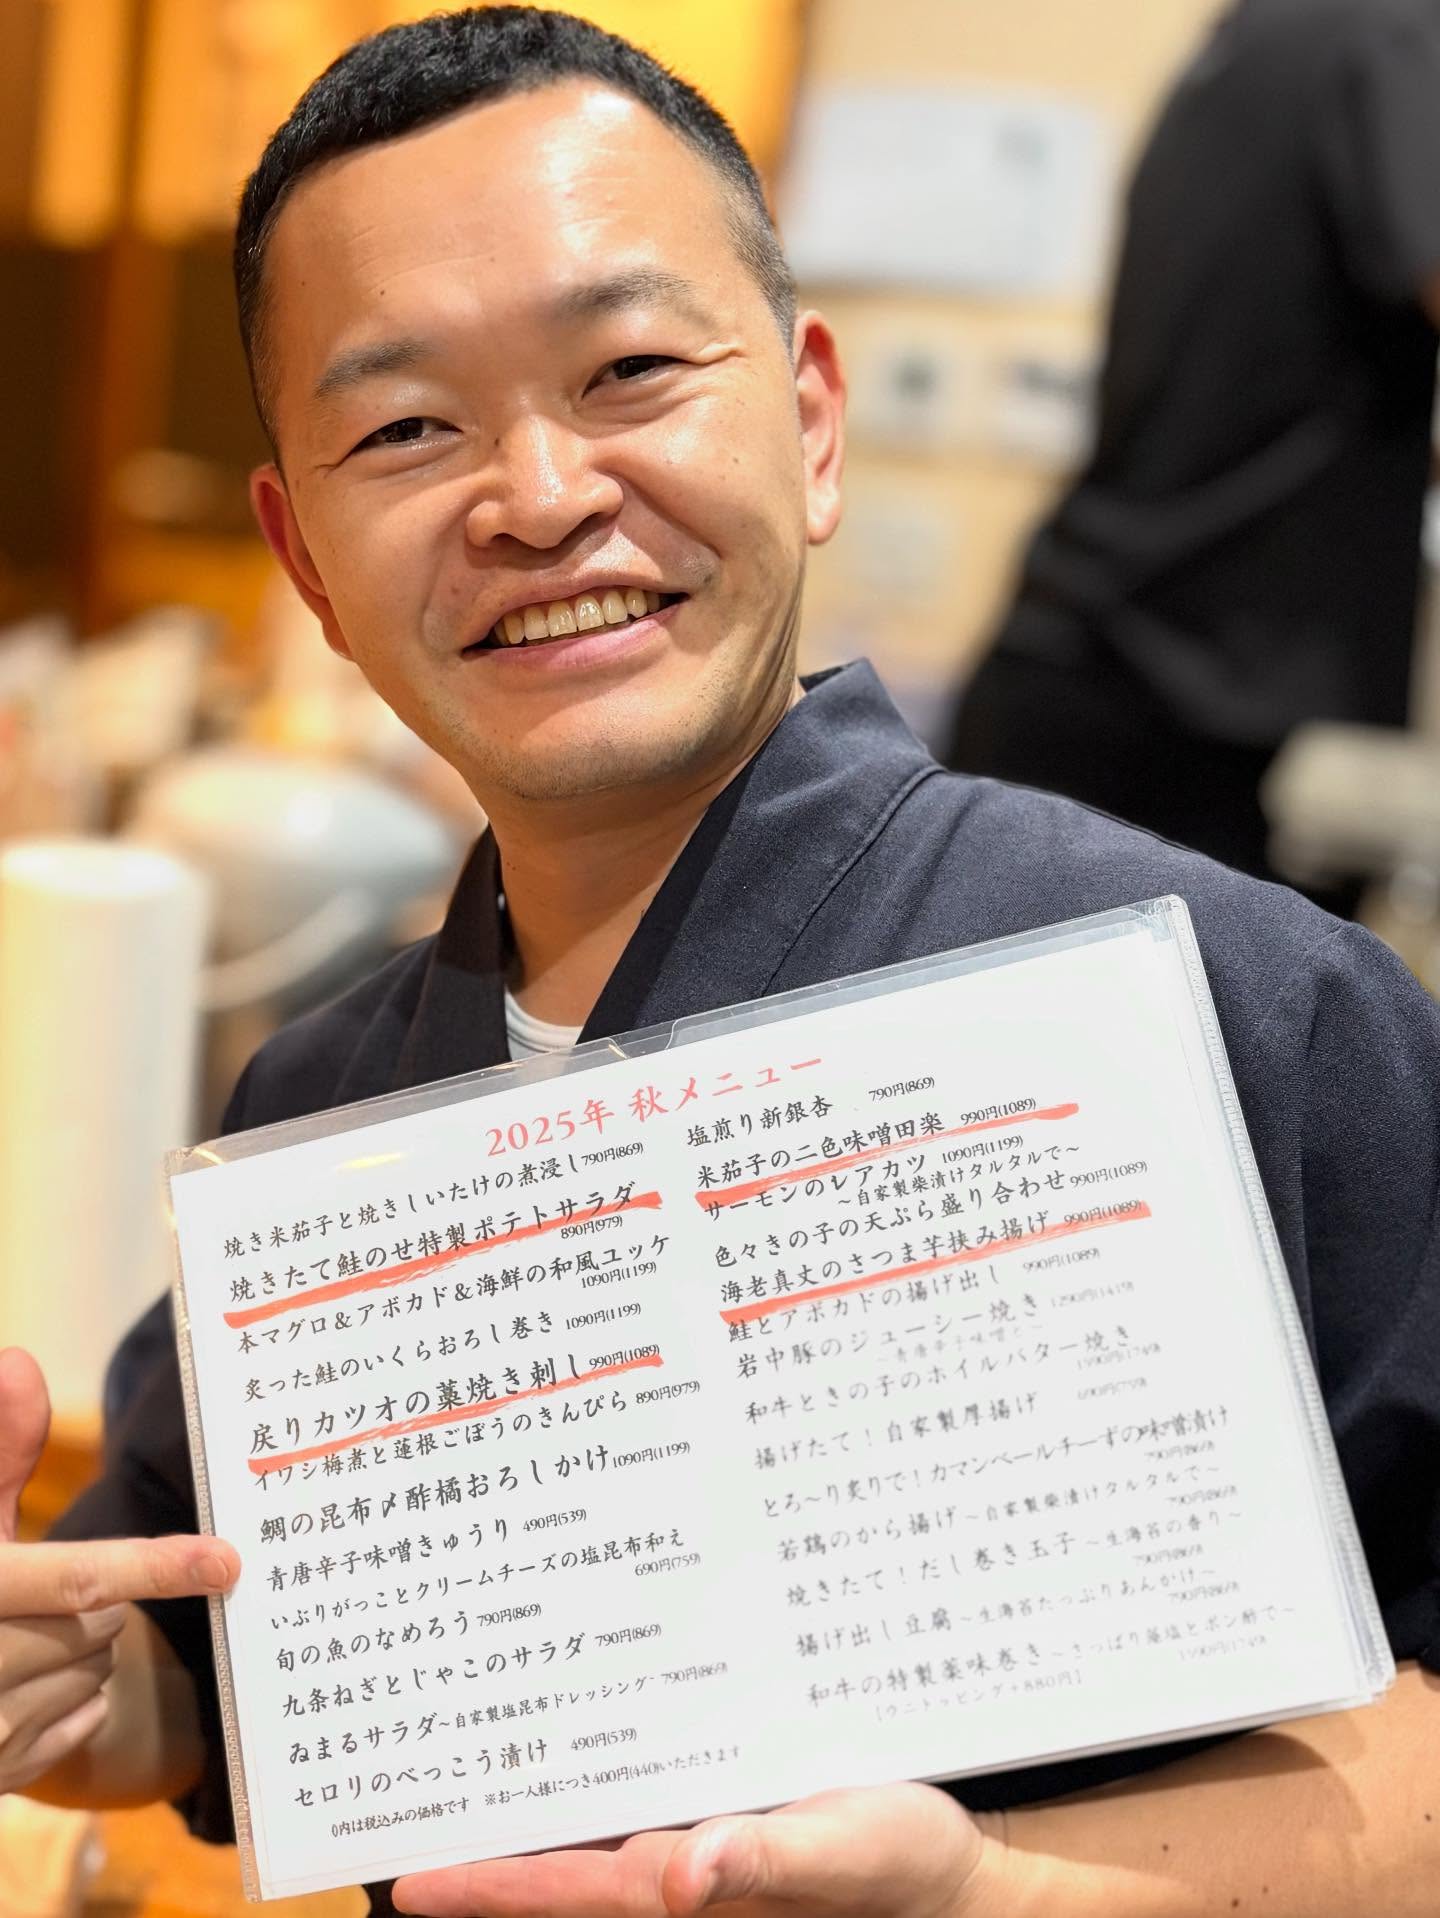 2025年 秋メニュー
焼き米茄子と焼きしいたけの煮浸し 790円(869)
焼きたて鮭のせ特製ポテトサラダ
890円(979)
本マグロ＆アボカド＆海鮮の和風ユッケ
1090円(1199)
炙った鮭のいくらおろし巻き 1090円(1199)
戻りカツオの藁焼き刺し 990円(1089)
イワシ梅煮と蓮根ごぼうのきんぴら 890円(979)
鯛の昆布〆酢橘おろしかけ 1090円(1199)
青唐辛子味噌きゅうり 490円(539)
いぶりがっことクリームチーズの塩昆布和え
690円(759)
旬の魚のなめろう 790円(869)
九条ねぎとじゃこのサラダ 790円(869)
ゐまるサラダ～自家製塩昆布ドレッシング～ 790円(869)
セロリのべっこう漬け 490円(539)
()内は税込みの価格です ※お一人様につき400円(440)いただきます
塩煎り新銀杏 790円(869)
米茄子の二色味噌田楽 990円(1089)
サーモンのレアカツ 1090円(1199)
～自家製柴漬けタルタルで～
色々きの子の天ぷら盛り合わせ 990円(1089)
海老真丈のさつま芋挟み揚げ 990円(1089)
鮭とアボカドの揚げ出し 990円(1089)
岩中豚のジューシー焼き 1290円(1419)
～青唐辛子味噌と～
和牛ときの子のホイルバター焼き
1590円(1749)
揚げたて！自家製厚揚げ 690円(759)
とろ～り炙りで！カマンベールチーずの味噌漬け
790円(869)
若鶏のから揚げ～自家製柴漬けタルタルで～
790円(869)
焼きたて！だし巻き玉子～生海苔の香り～
790円(869)
揚げ出し豆腐～生海苔たっぷりあんかけ～
790円(869)
和牛の特製薬味巻き～さっぱり藻塩とポン酢で～
1590円(1749)
【ウニトッピング+880円】